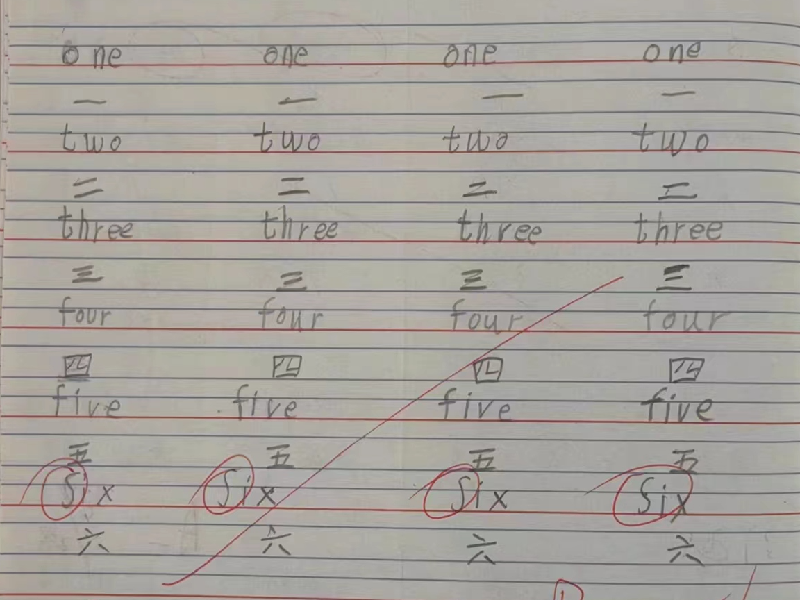 one one one one
一 一 一 一
two two two two
二 二 二 二
three three three three
三 三 三 三
four four four four
四 四 四 四
five five five five
五 五 五 五
Six Six Six Six
六 六 六 六